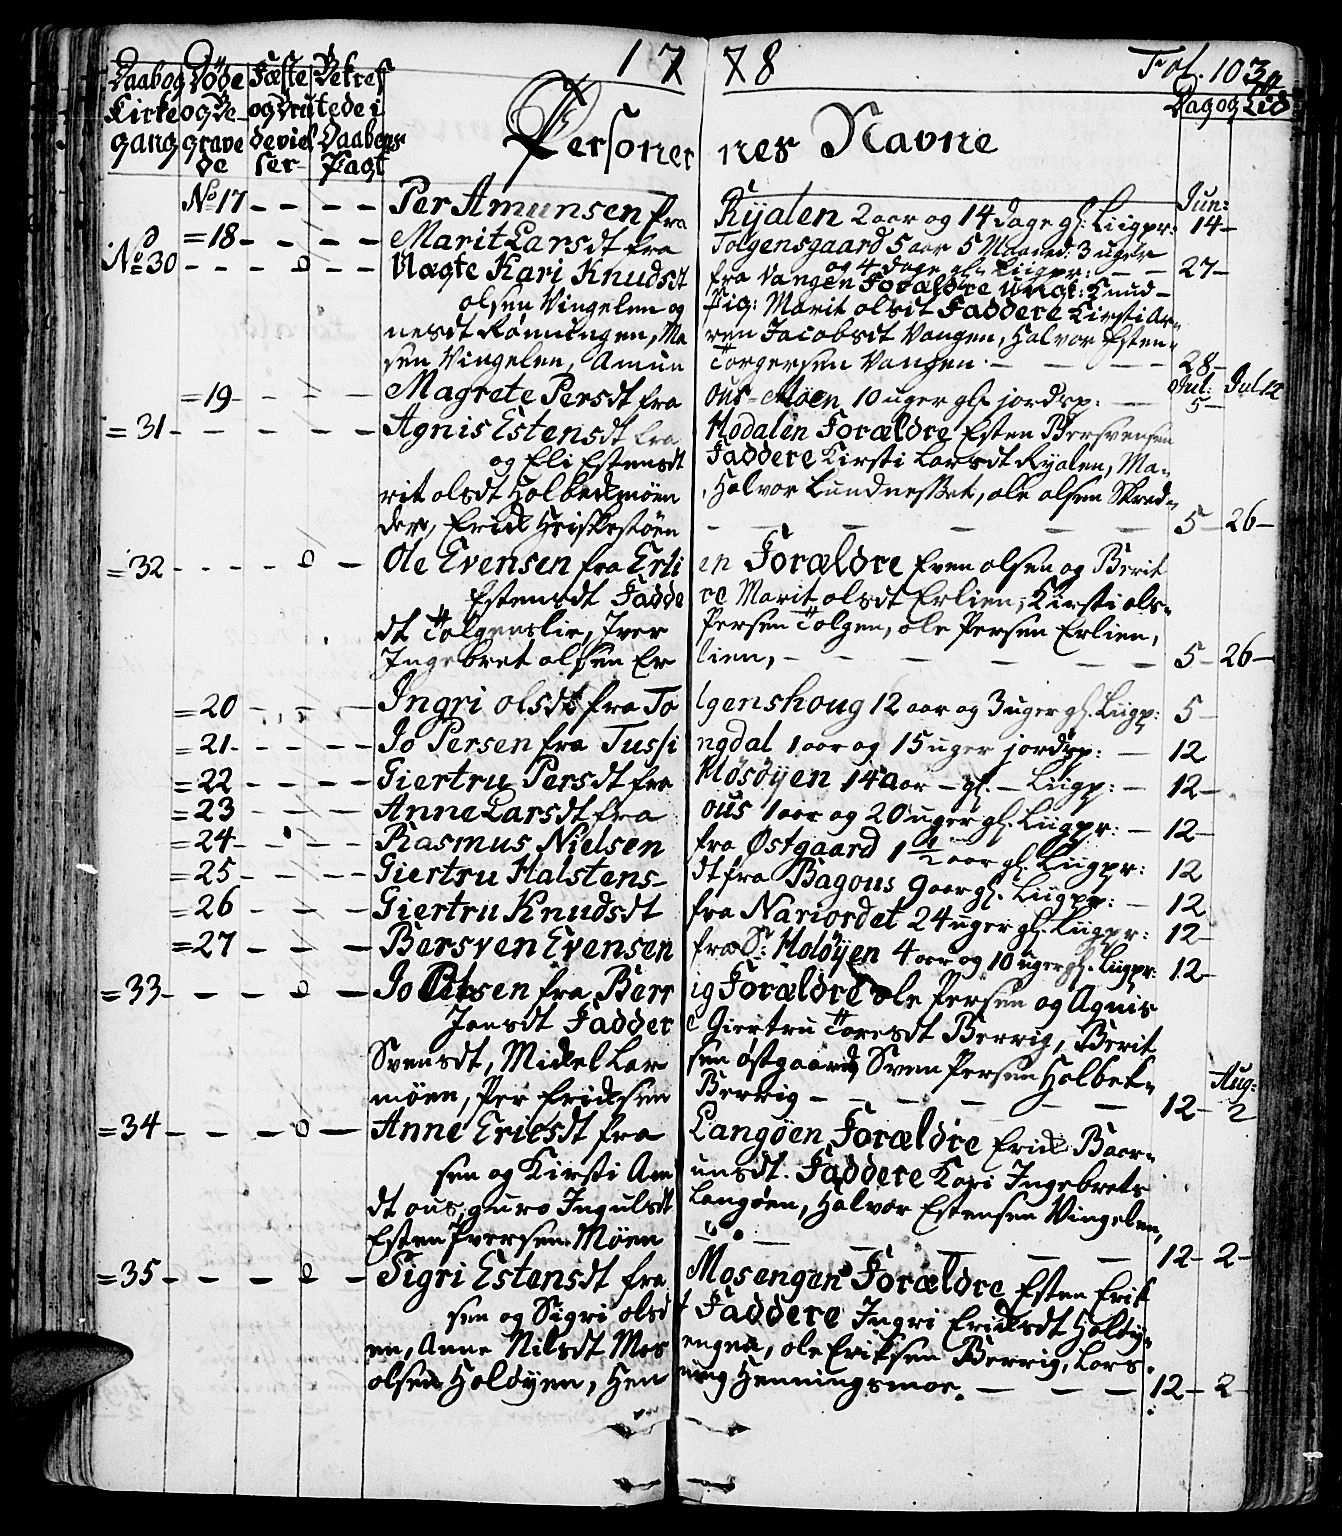 1778 Fol. 103
Daab og Kirkegang
Døde og Begravede
Fæste og Brudevielser
Bekreftede i Daabens Pagt
Personernes Navne
Dag og Tid
No 17 - - - Per Amunsen fra Ryalen 2 aar og 14 dage gl. Liigpr: Jun: 14 -
= 18 - - - - Marit Larsdt fra Tolgensgaard 5 aar 5 Maaned: 3 uger
og 4 dage gl. Liigpr: - - 27 -
No 30 - - - o - - Uægte Kari Knudsdt fra Vangen Forældre Ungk: Knud
olsen Vingelen og Pig: Marit olsdt Faddere Kirsti Ar-
nesdt Rønningen, Ma ren Jacobsdt Vangen, Halvor Esten-
sen Vingelen, Amun Torgersen Vangen. - - - - 28 -
= 19 - - - - Magrete Persdt fra ous-Møen 10 uger gl. jordsp: - Jul: 5 - Jul 12
= 31 - - - - - Agnis Estensdt fra Hodalen Forældre Esten Bersvensen
og Eli Estensdt Faddere Kirsti Larsdt Ryalen, Ma-
rit olsdt Holbekmøen, Halvor Lundnesset, ole olsen Skred-
der, Erick Hriskestøen - - - - - - 5 - 26 -
= 32 - - - - o - Ole Evensen fra Erlien Forældre Even olsen og Berit
Estensdt Faddere Marit olsdt Erlien, Kirsti ols-
dt Tolgenslie, Iver Persen Tolgen, ole Persen Erlien,
Ingebret olsen Erlien, - - - - - 5 - 26 -
= 20 - - - - Ingri olsdt fra Tolgenshoug 12 aar og 3 uger gl. Liigp: 5 -
= 21 - - - - Jo Persen fra Tussingdal 1 aar og 15 uger jordsp: - 12
= 22 - - - - Giertru Persdt fra Kløsøyen 14 aar - gl. - Liigp: - 12 -
= 23 - - - Anne Larsdt fra ous 1 aar og 20 uger gl. Liigpr: - 12 -
= 24 - - - Rasmus Nielsen fra Østgaard 1 1/2 aar gl. Liigpr: 12
= 25 - - - - Giertru Halstensdt fra Bagous 9 aar gl. Liigpr: - 12
= 26 - - - - Giertru Knudsdt fra Nariordet 24 uger gl. Liigpr: 12 -
= 27 - - - - Bersven Evensen fra S: Holøyen 4 aar og 10 uger gl. Liigpr: 12 -
= 33 - - - o - Jo Olsen fra Berrig Forældre ole Persen og Agnis
Jonsdt Faddere Giertru Toresdt Berrig, Berit
Svensdt, Mickel Larsen østgaard, Sven Persen Holbek-
møen, Per Ericksen Berrig - - - - - - 12 - Aug: 2
= 34 - - - o - Anne Ericsdt fra Langøen Forældre Erick Baar-
sen og Kirsti Amunsdt. Faddere Kari Ingebrets
dt ous, guro Ingulsdt Langøen, Halvor Estensen Vingelen,
Esten Iversen Møen - - - - 12 - 2 -
= 35 - - - o - Sigri Estensdt fra Mosengen Forældre Esten Erik
sen og Sigri olsdt Faddere Ingri Ericksdt Holøy-
en, Anne Nilsdt Mosengen, ole Eriksen Berrig, Lars
olsen Holøyen, Henning Henningsmoe. - - - - 12 - 2 -